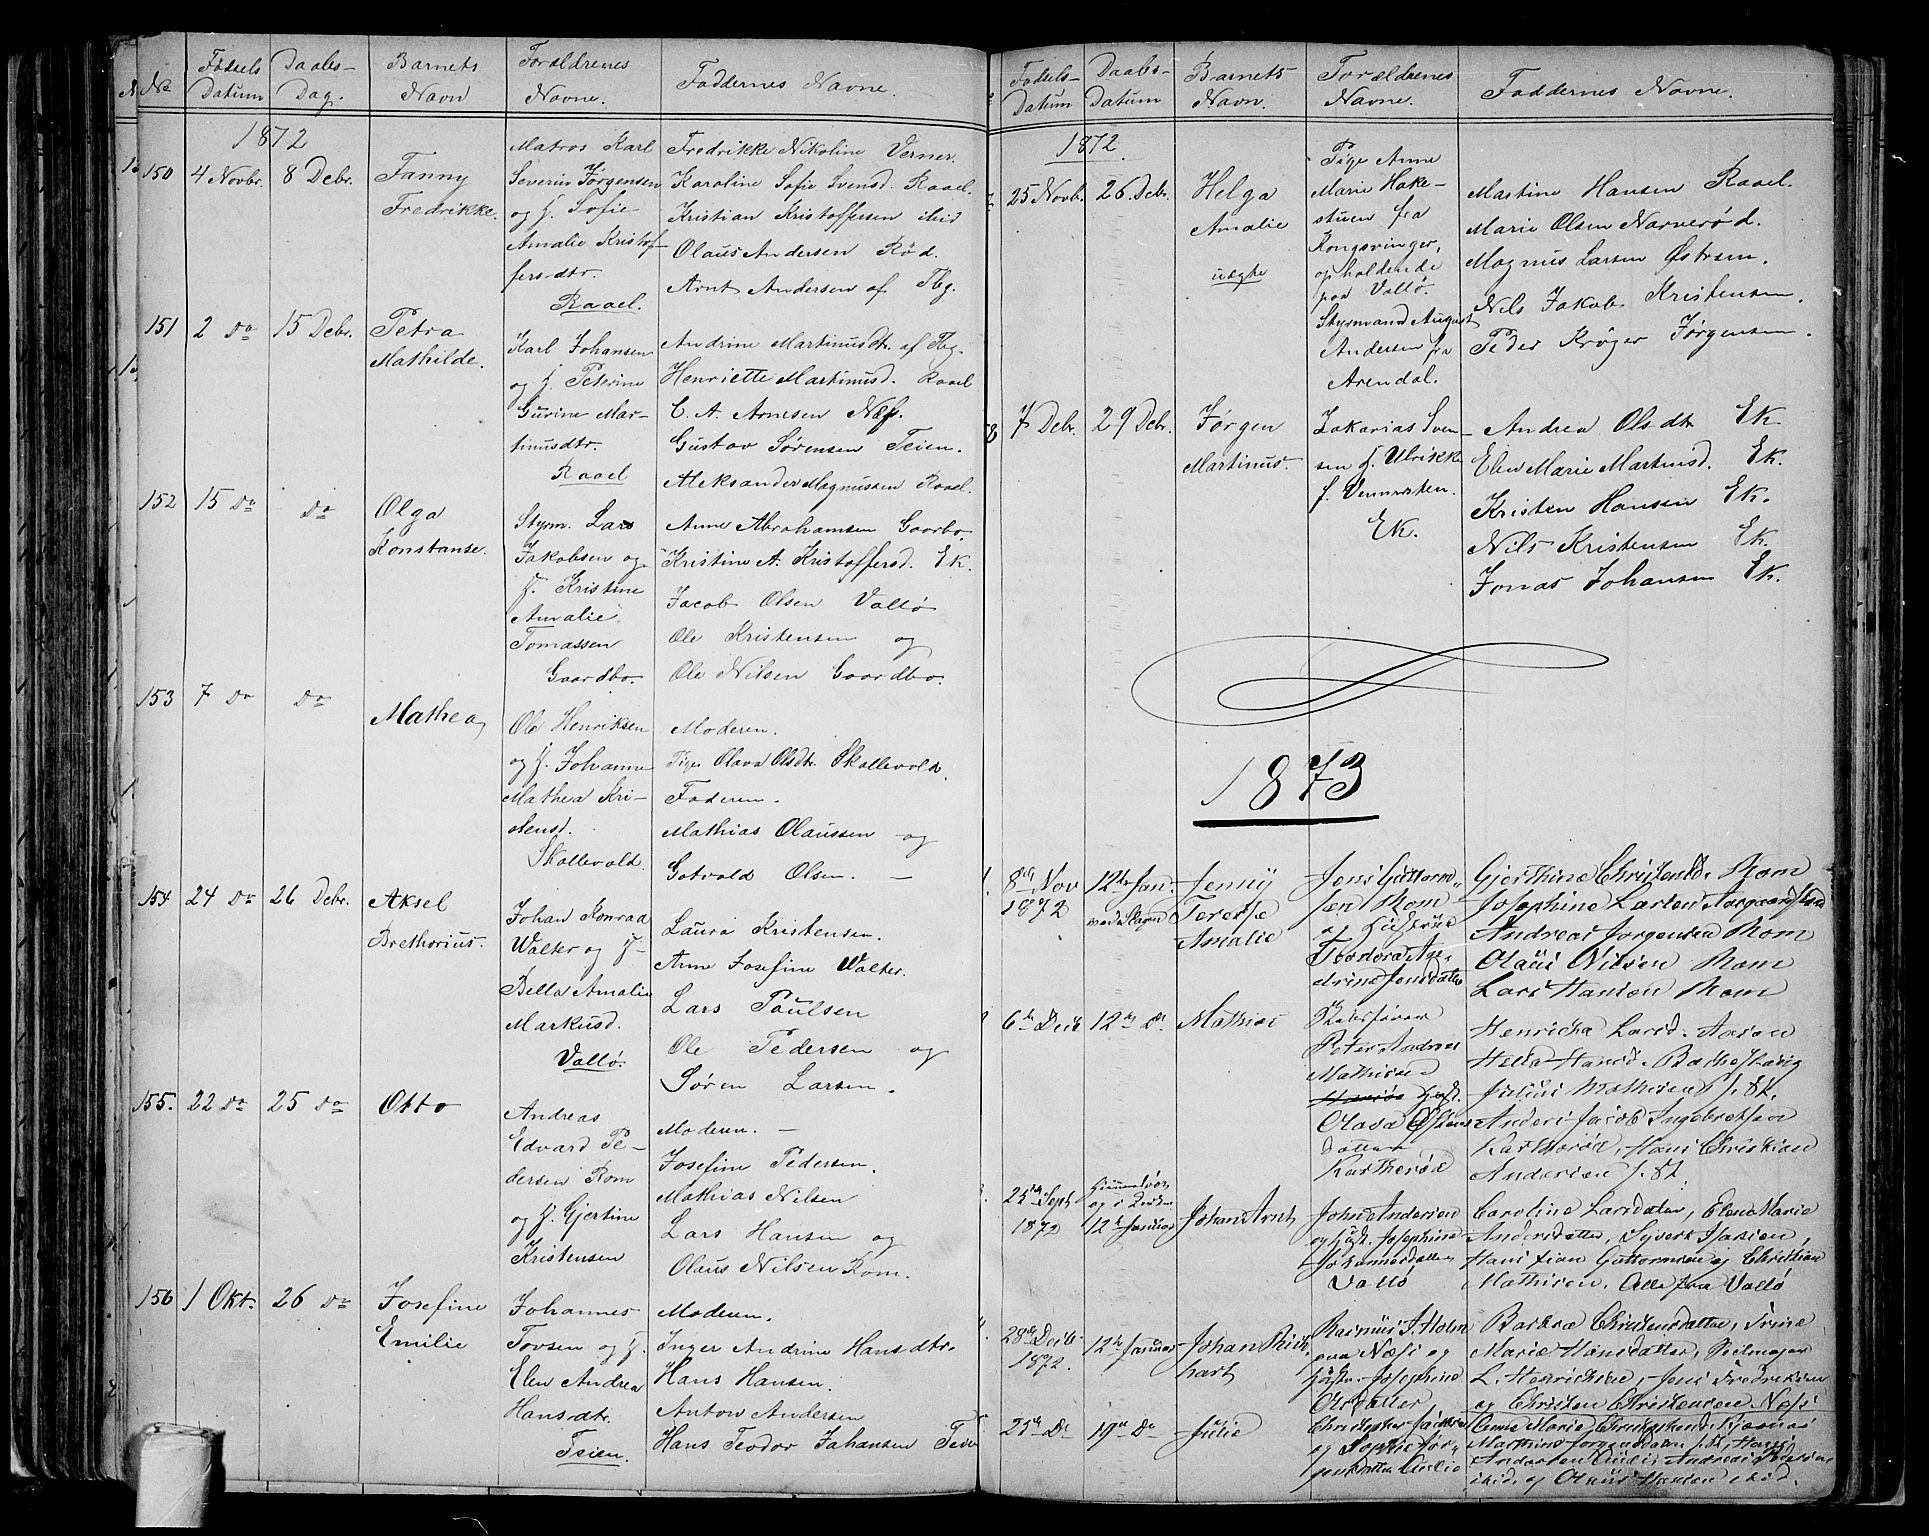 No Fødsels Datum Daabs-Dag. Barnets Navn Forældrenes Navne. Faddernes Navne.
1872
150 4 Novbr. 8 Debr. Fanny Fredrikke.
Matros Karl
Severin Jørgensen
og H. Sofie
Amalie Kristof-
fersdtr.
Raael.
Fredrikke Nikoline Verner.
Karoline Sofie Svensd. Raael.
Kristian Kristoffersen ibid
Olaus Andersen Rød.
Arnt Andersen af Tbg.
151 2 Do 15 Debr. Petra Mathilde.
Karl Johansen
og H. Peterine
Gurine Mar-
tinusdtr.
Raael
Andrine Martinusdtr. af Tbg.
Henriette Martinusd. Raael
C. A. Arnesen Næss.
Gustav Sørensen Teien.
Aleksander Magnussen Raael.
152 15 Do do Olga Konstanse.
Styrm. Lars
Jakobsen og
H. Kristine
Amalie
Tomassen
Gaardbo.
Anne Abrahamsen Gaarbo.
Kristine A. Kristoffersd. Ek.
Jacob Olsen Vallø
Ole Kristensen og
Ole Nilsen Gaardbo.
153 7 Do do Mathea
Ole Henriksen
og H. Johanne
Mathea Kri-
stensd.
Skallevold
Moderen.
Pige Olava Olsdtr. Skallevold.
Faderen.
Mathias Olaussen og
Gotvald Olsen. —
154 24 Do 26 Debr. Aksel Brethorius.
Johan Konrad
Walter og H.
Bella Amalie
Markusd.
Vallø.
Laura Kristensen.
Anne Josefine Walter.
Lars Poulsen
Ole Pedersen og
Søren Larsen.
155. 22 Do 25 Do Otto
Andreas
Edvard Pe-
dersen Rom
og H. Gjertine
Kristensen
Moderen. —
Josefine Pedersen.
Mathias Nilsen
Lars Hansen og
Olaus Nilsen Rom.
156 1 Okt. 26 Do Josefine Emilie
Johannes
Tovsen og H.
Elen Andrea
Hansdtr.
Teien.
Moderen.
Inger Andrine Hansdtr.
Hans Hansen.
Anton Andersen
Hans Teodor Johansen Teien
Fødsels-Datum Daabs-Datum Barnets Navn. Forældrenes Navne. Faddernes Navne.
1872.
25 Novb. 26 Deb. Helga Amalie uægte
Pige Anne
Marie Hake-
stuen fra
Kongsvinger,
opholdende
paa Vallø.
Styrmand August
Andersen fra
Arendal.
Martine Hansen Raael.
Marie Olsen Narverød.
Magnus Larsen Østrem.
Nils Jakob Kristensen.
Peder Krøger Jørgensen.
8 7 Debr. 29 Debr. Jørgen Martinus.
Zakarias Sven-
sen H. Ulrikke
f. Vennesten.
Ek.
Andrea Olsdtr Ek
Elen Marie Martinsd. Ek.
Kristen Hansen Ek.
Nils Kristensen Ek
Jonas Johansen Ek.
1873
1. 8de Nov 1872 12te Jan. Jenny Terese Amalie
Jens Guttorm-
sen Rom
og Hustrue
Theodora
Jensdatter
Gjerthine Christensd. Rom
Josephine Larsen
Andreas Jørgensen Rom
Olaus Nilsen Rom
Lars Hansen Rom
6te Decb 12te Do Mathias
Peter Andreas
Mathisen
Hust.
Olava
datter
Kartherød
Henrikka Larsd. Aasen
Helle Hansd.
Julius Mathisen S. St.
Anders Jacob Ingebretsen
Kartherød, Hans Christian
Andersen S. St.
25de Sept 1872 12te Januar Johan Arnt
Johan Andersen
og Hust. Josephine
Johannesdatter
Vallø
Caroline Larsdatter, Elene Marie
Andersdatter, Syvert
Hans Guttormsen og Christian
Mathisen, Alle fra Vallø
28de Decb 1872. 12te Januar Johan
hart
Rasmus Holm
paa Næss og
Josephine
Olsdatter
Barbra Christensdatter, Trine
Marie Hansdatter, Seilmager
L. Henrichsen, Jens Fredriksen
og Christen Christensen Næss
25de Do 19de Do Julie
Christopher
og Sophie Jør-
gensdatter
Anne Marie
Marthine Jørgensdatter S. St., Hans
Andersen
ibid. og Olaus Hansen ibid.